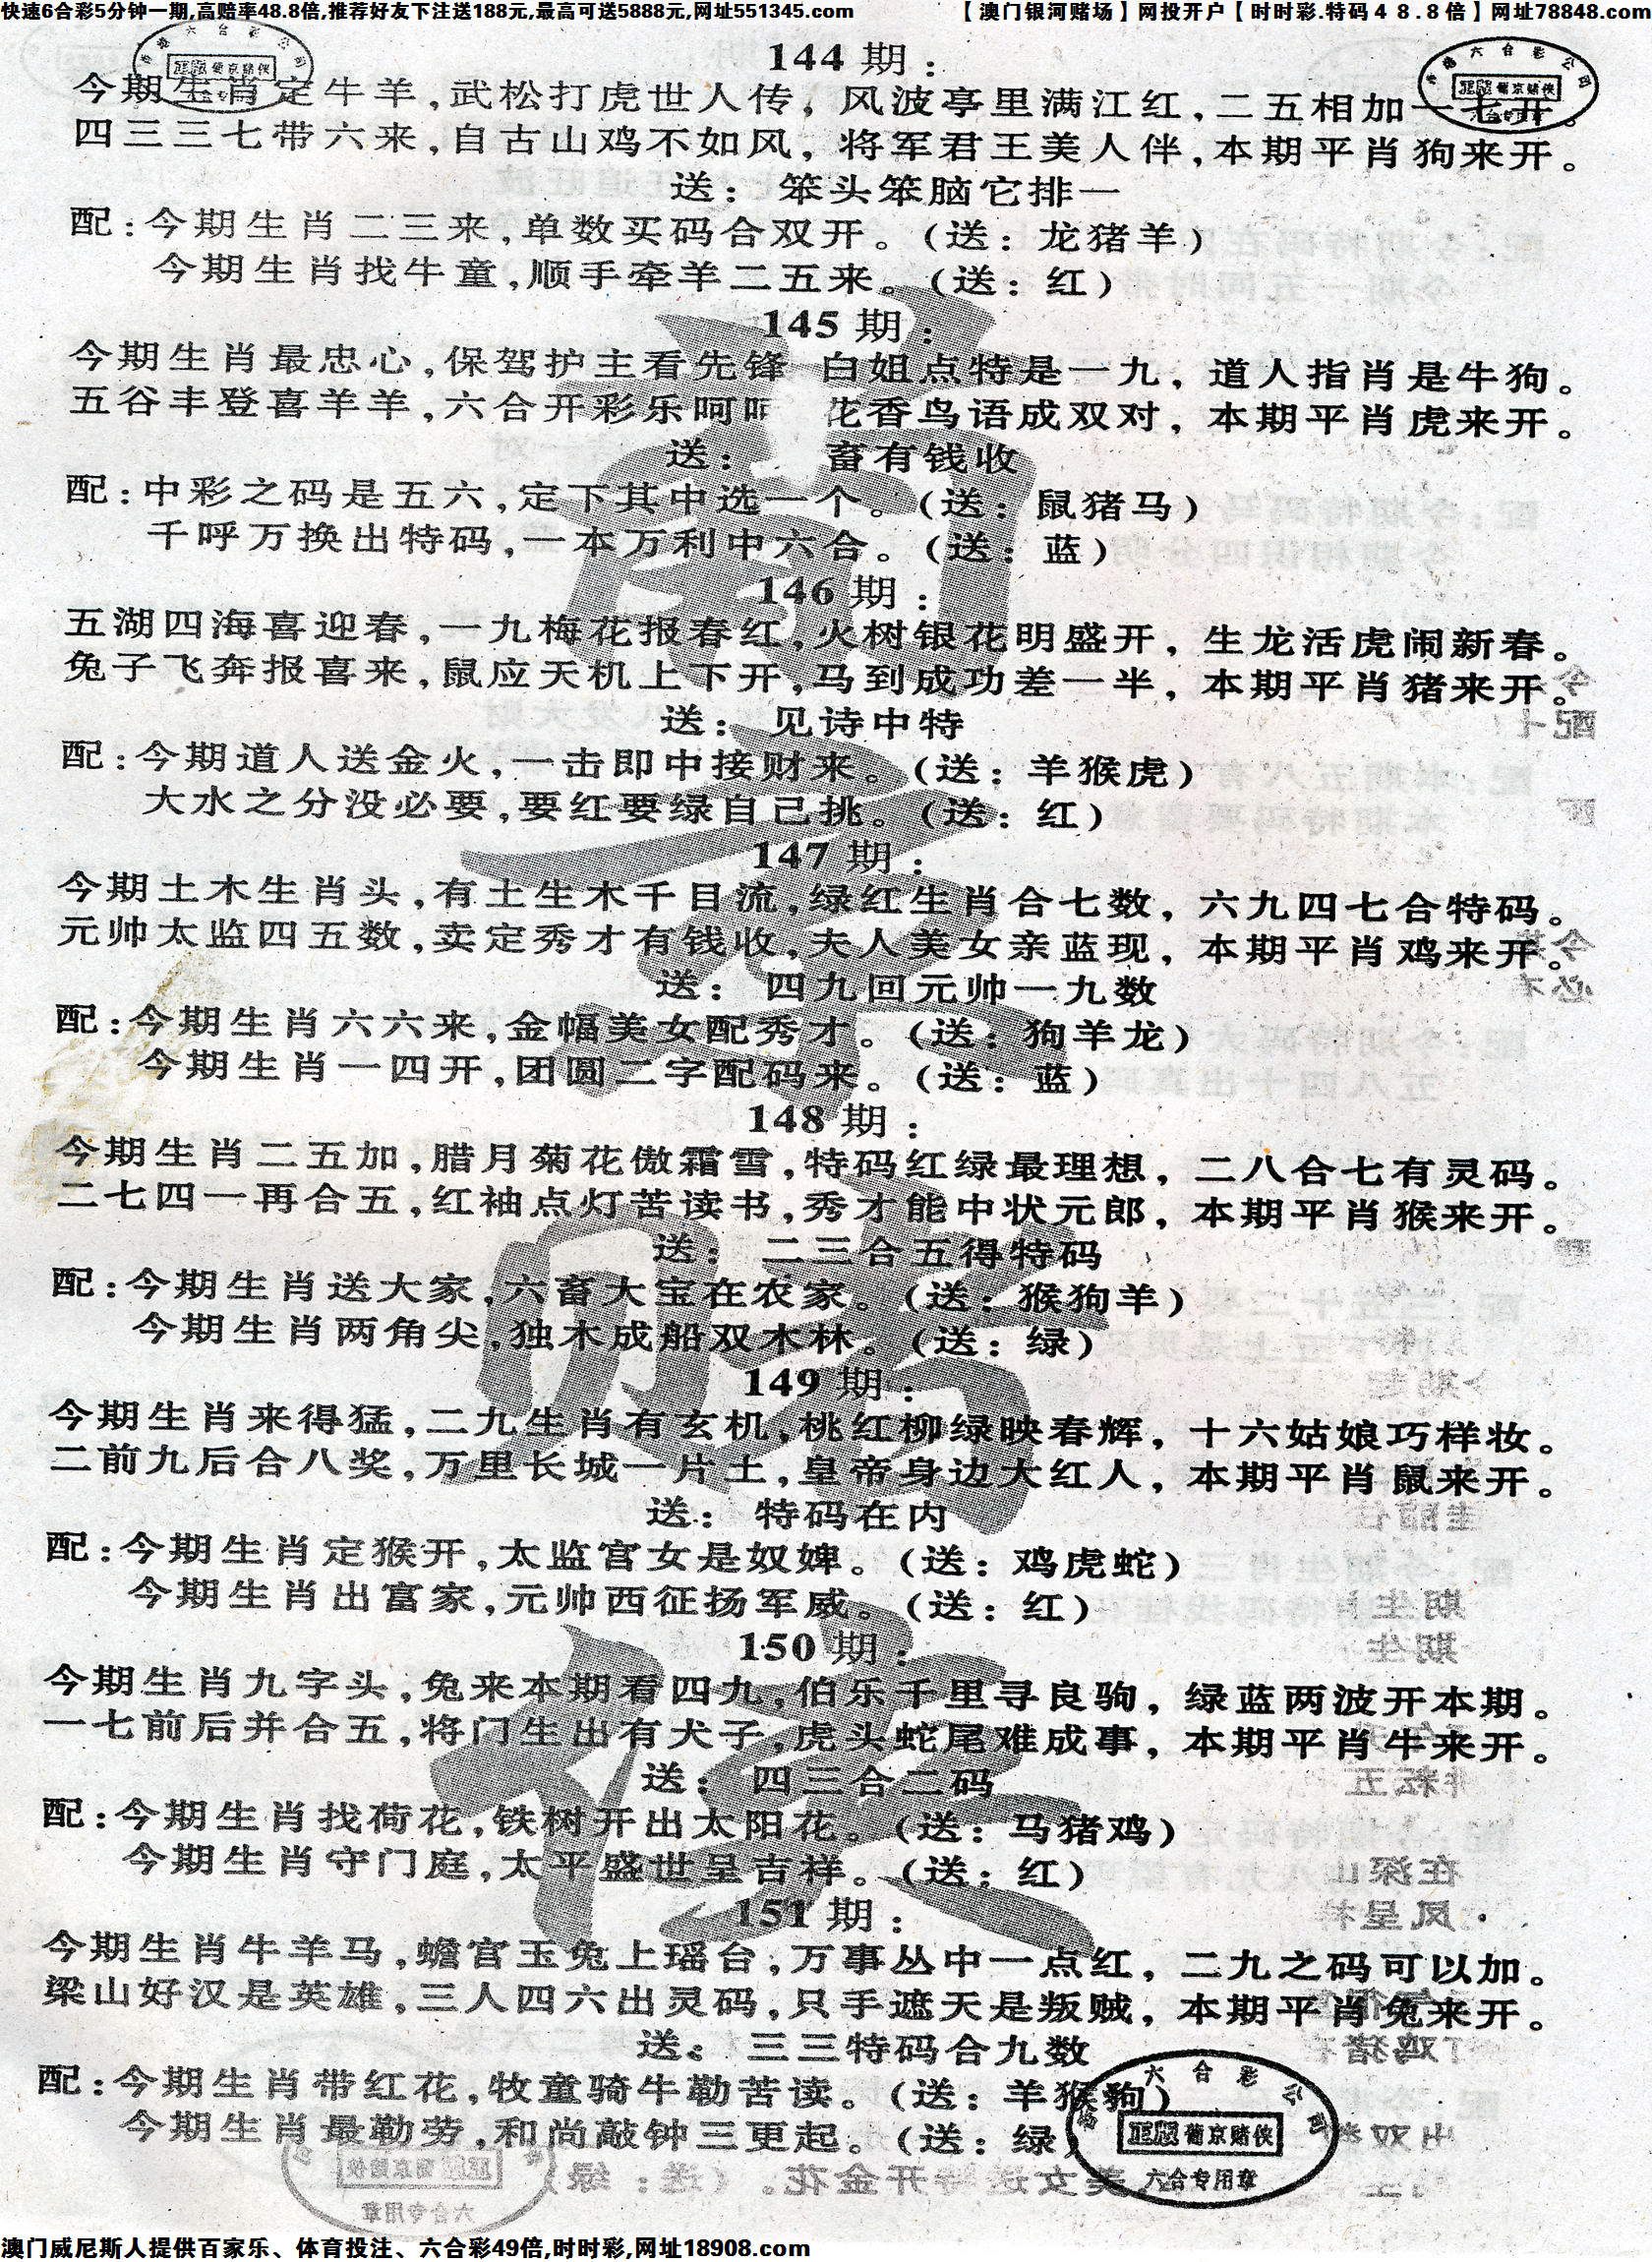 快速6合彩5分钟一期,高赔率48.8倍,推荐好友下注送188元,最高可送5888元,网址551345.com
【澳门银河赌场】网投开户【时时彩.特码４８.８倍】网址78848.com
144期：
今期生肖定牛羊,武松打虎世人传，风波亭里满江红,二五相加一七开。
四三三七带六来,自古山鸡不如风，将军君王美人伴,本期平肖狗来开。
送：笨头笨脑它排一
配:今期生肖二三来,单数买码合双开。(送：龙猪羊)
今期生肖找牛童,顺手牵羊二五来。(送：红)
145期：
今期生肖最忠心,保驾护主看先锋 白姐点特是一九，道人指肖是牛狗。
五谷丰登喜羊羊,六合开彩乐呵呵 花香鸟语成双对，本期平肖虎来开。
送： 畜有钱收
配:中彩之码是五六,定下其中选一个。(送：鼠猪马)
千呼万换出特码,一本万利中六合。(送：蓝)
146期：
五湖四海喜迎春,一九梅花报春红,火树银花明盛开，生龙活虎闹新春。
兔子飞奔报喜来,鼠应天机上下开,马到成功差一半，本期平肖猪来开。
送：见诗中特
配:今期道人送金火,一击即中接财来。(送：羊猴虎)
大水之分没必要,要红要绿自己挑。(送：红)
147期：
今期土木生肖头,有土生木千目流,绿红生肖合七数，六九四七合特码。
元帅太监四五数,卖定秀才有钱收,夫人美女亲蓝现，本期平肖鸡来开。
送：四九回元帅一九数
配:今期生肖六六来,金幅美女配秀才。(送：狗羊龙)
今期生肖一四开,团圆二字配码来。(送：蓝)
148期：
今期生肖二五加,腊月菊花傲霜雪,特码红绿最理想，二八合七有灵码。
二七四一再合五,红袖点灯苦读书,秀才能中状元郎，本期平肖猴来开。
送：二三合五得特码
配:今期生肖送大家,六畜大宝在农家。(送：猴狗羊)
今期生肖两角尖,独木成船双木林。(送：绿)
149期：
今期生肖来得猛,二九生肖有玄机,桃红柳绿映春辉，十六姑娘巧样妆。
二前九后合八奖,万里长城一片土,皇帝身边大红人，本期平肖鼠来开。
送：特码在内
配:今期生肖定猴开,太监宫女是奴婢。(送：鸡虎蛇)
今期生肖出富家,元帅西征扬军威。(送：红)
150期：
今期生肖九字头,兔来本期看四九,伯乐千里寻良驹，绿蓝两波开本期。
一七前后并合五,将门生出有犬子,虎头蛇尾难成事，本期平肖牛来开。
送：四三合二码
配:今期生肖找荷花,铁树开出太阳花。(送：马猪鸡)
今期生肖守门庭,太平盛世呈吉祥。(送：红)
151期：
今期生肖牛羊马,蟾宫玉兔上瑶台,万事丛中一点红，二九之码可以加。
梁山好汉是英雄,三人四六出灵码,只手遮天是叛贼，本期平肖兔来开。
送：三三特码合九数
配:今期生肖带红花,牧童骑牛勒苦读。(送：羊猴狗)
今期生肖最勒劳,和尚敲钟三更起。(送：绿)
六合彩公司
正版 葡京赌侠
六合专用章
澳门威尼斯人提供百家乐、体育投注、六合彩49倍,时时彩,网址18908.com